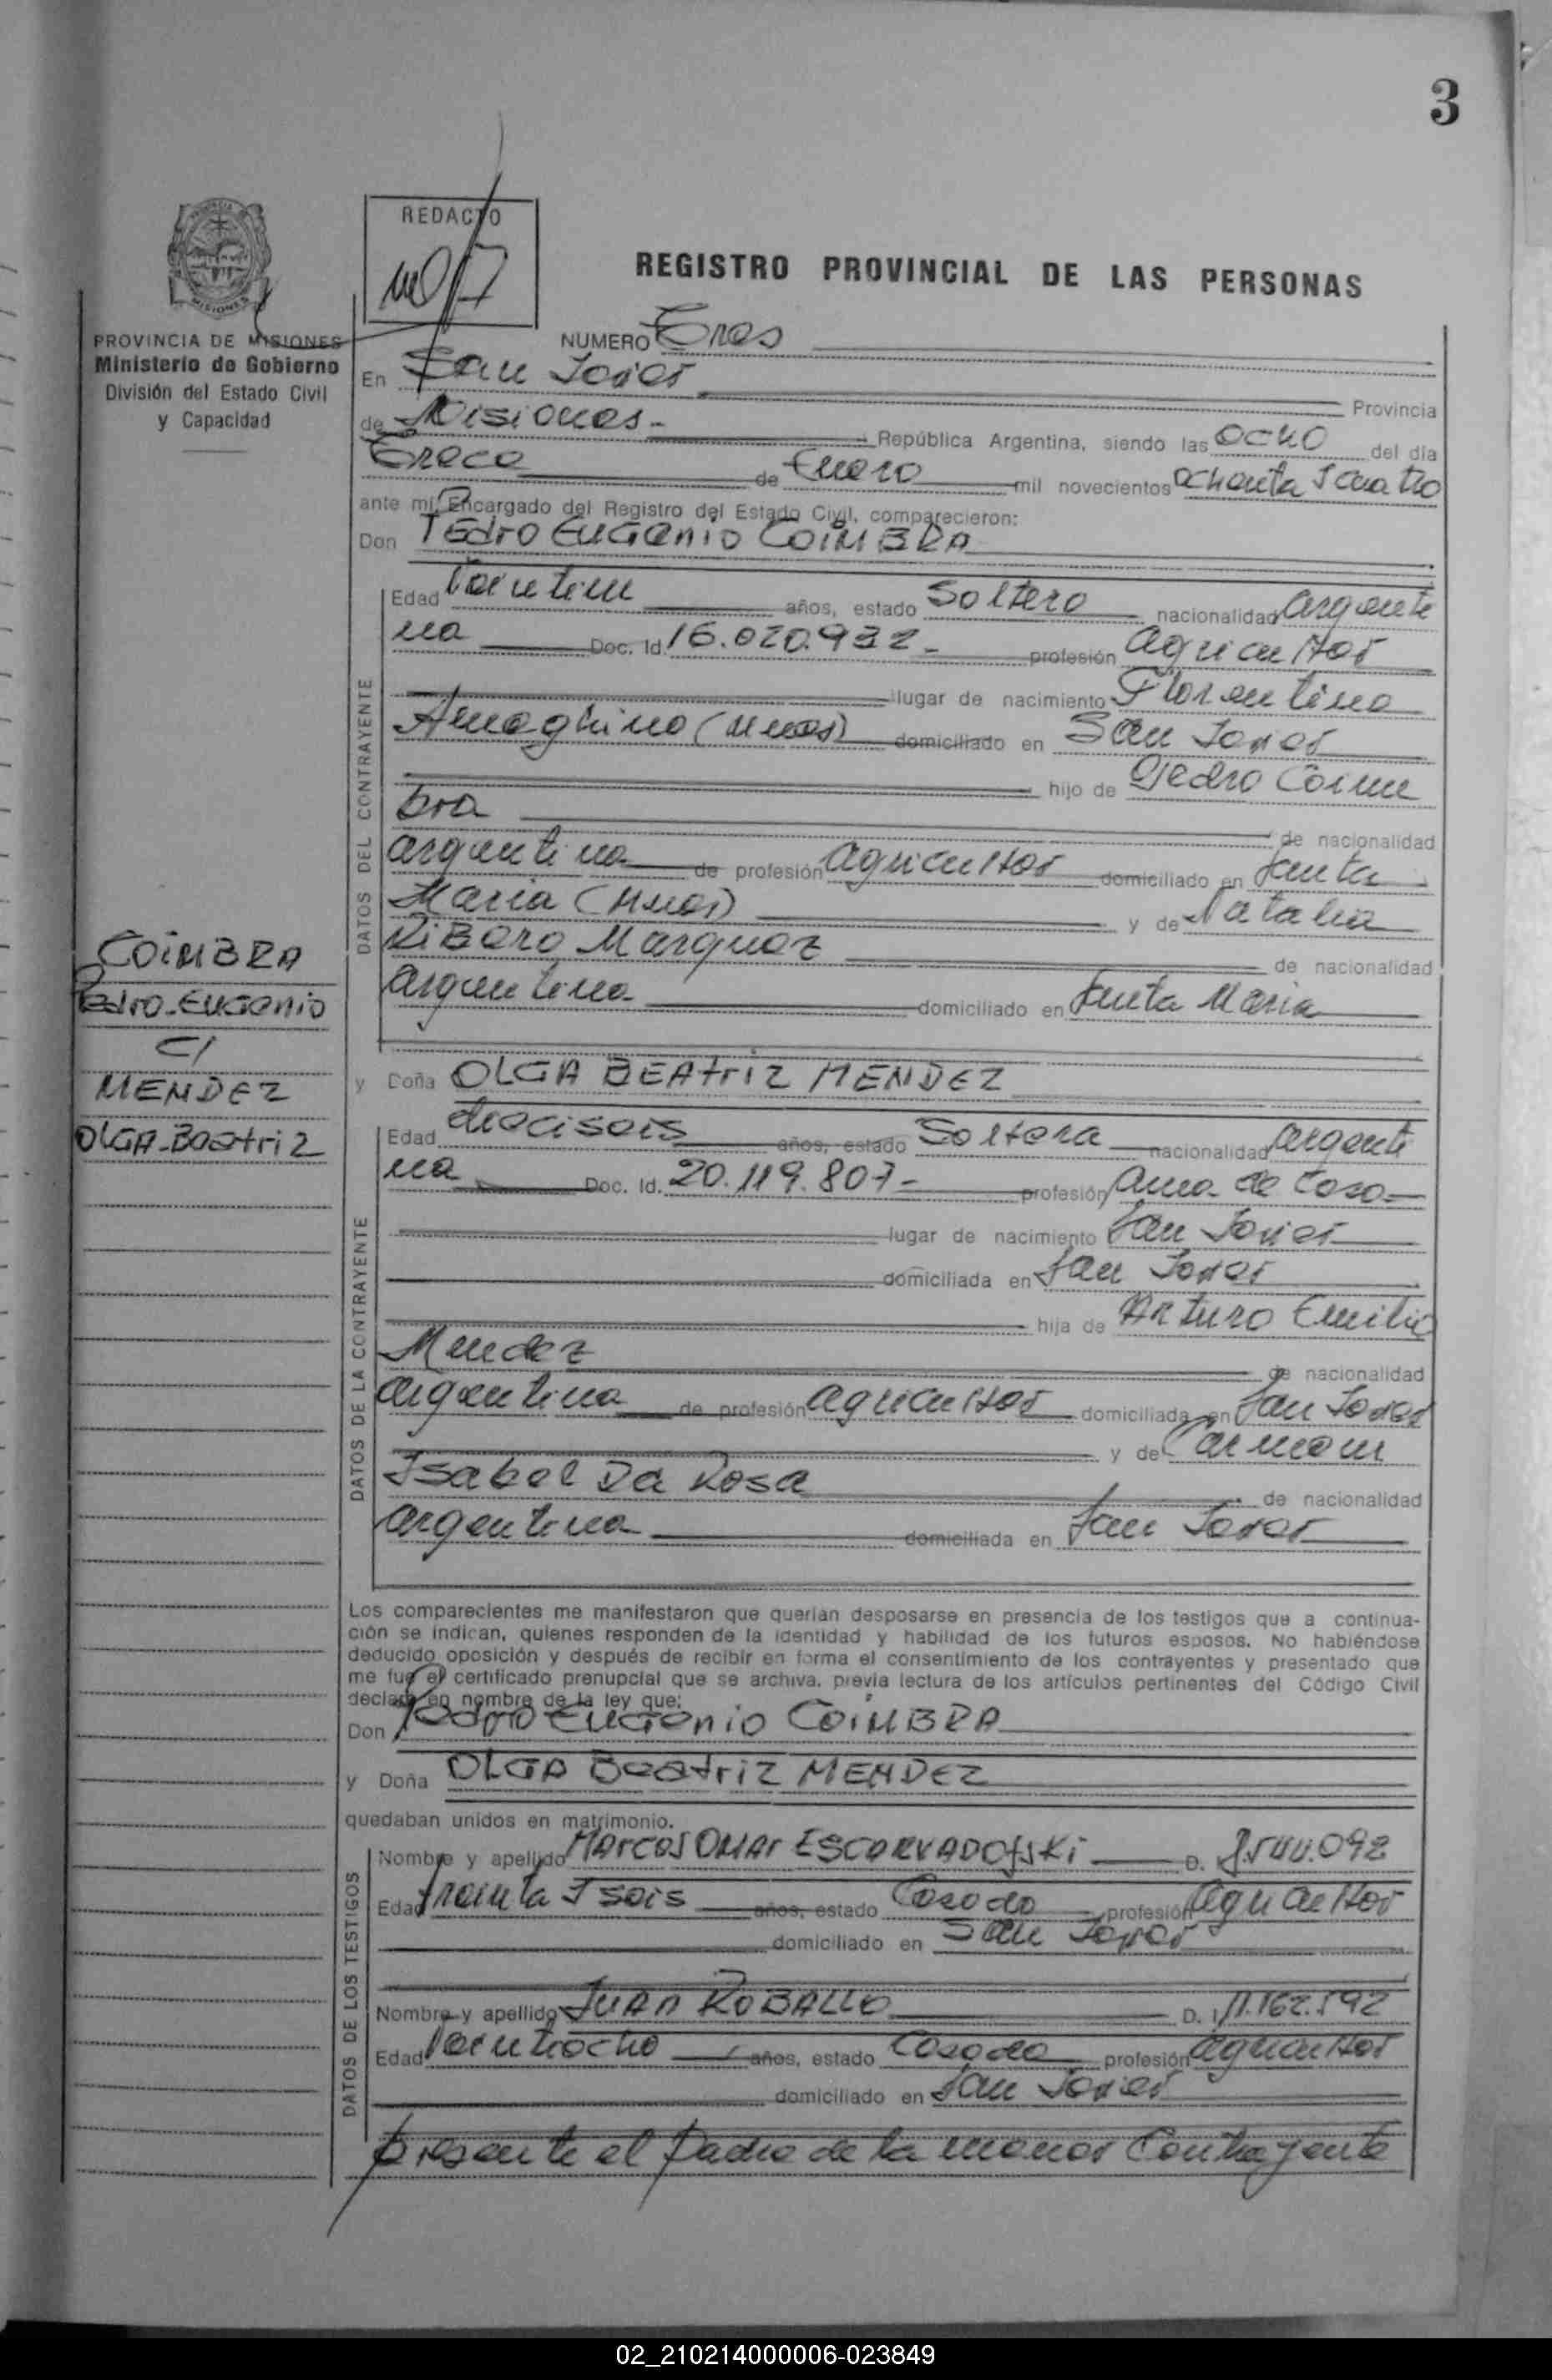 3
REDACTO
REGISTRO PROVINCIAL DE LAS PERSONAS
PROVINCIA DE MISIONES
Ministerio de Gobierno
División del Estado Civil
y Capacidad
NUMERO Tres
En San Javier
Provincia
de Misiones.- República Argentina, siendo las ocho del día
Trece de Enero mil novecientos ochenta y cuatro
ante mí, Encargado del Registro del Estado Civil, comparecieron:
Don Pedro Eugenio COIMBRA
DATOS DEL CONTRAYENTE
Edad Veintiun años, estado Soltero nacionalidad argenti
na Doc. Id. 16.020.932.- profesión agricultor
lugar de nacimiento Florentino
Ameghino (Mnes) domiciliado en San Javier
hijo de Pedro Coim
bra de nacionalidad
argentina de profesión agricultor domiciliado en Santa
Maria (Mnes) y de Natalia
Ribero Marquez de nacionalidad
argentina domiciliado en Santa Maria
COIMBRA
Pedro-Eugenio
C/
MENDEZ
OLGA-Beatriz
y Doña OLGA BEAtriz MENDEZ
DATOS DE LA CONTRAYENTE
Edad dieciseis años, estado Soltera nacionalidad argenti
na Doc. Id. 20.119.807- profesión ama de casa-
lugar de nacimiento San Javier
domiciliada en San Javier
hija de Arturo Emilio
Mendez de nacionalidad
argentina de profesión agricultor domiciliada en San Javier
y de Carmem
Isabel Da Rosa de nacionalidad
argentina domiciliada en San Javier
Los comparecientes me manifestaron que querían desposarse en presencia de los testigos que a continua-
ción se indican, quienes responden de la identidad y habilidad de los futuros esposos. No habiéndose
deducido oposición y después de recibir en forma el consentimiento de los contrayentes y presentado que
me fue el certificado prenupcial que se archiva, previa lectura de los artículos pertinentes del Código Civil
declaro en nombre de la ley que:
Don Pedro Eugenio COIMBRA
y Doña OLGA Beatriz MENDEZ
quedaban unidos en matrimonio.
DATOS DE LOS TESTIGOS
Nombre y apellido MArcos OMAr D. 8.544.092
Edad treinta y seis años, estado Casado profesión agricultor
domiciliado en San Javier
Nombre y apellido JUAN ROBALLO D. I. 11.162.592
Edad Veintiocho años, estado Casado profesión agricultor
domiciliado en San Javier
presente el padre de la menor Contrayente
02_210214000006-023849